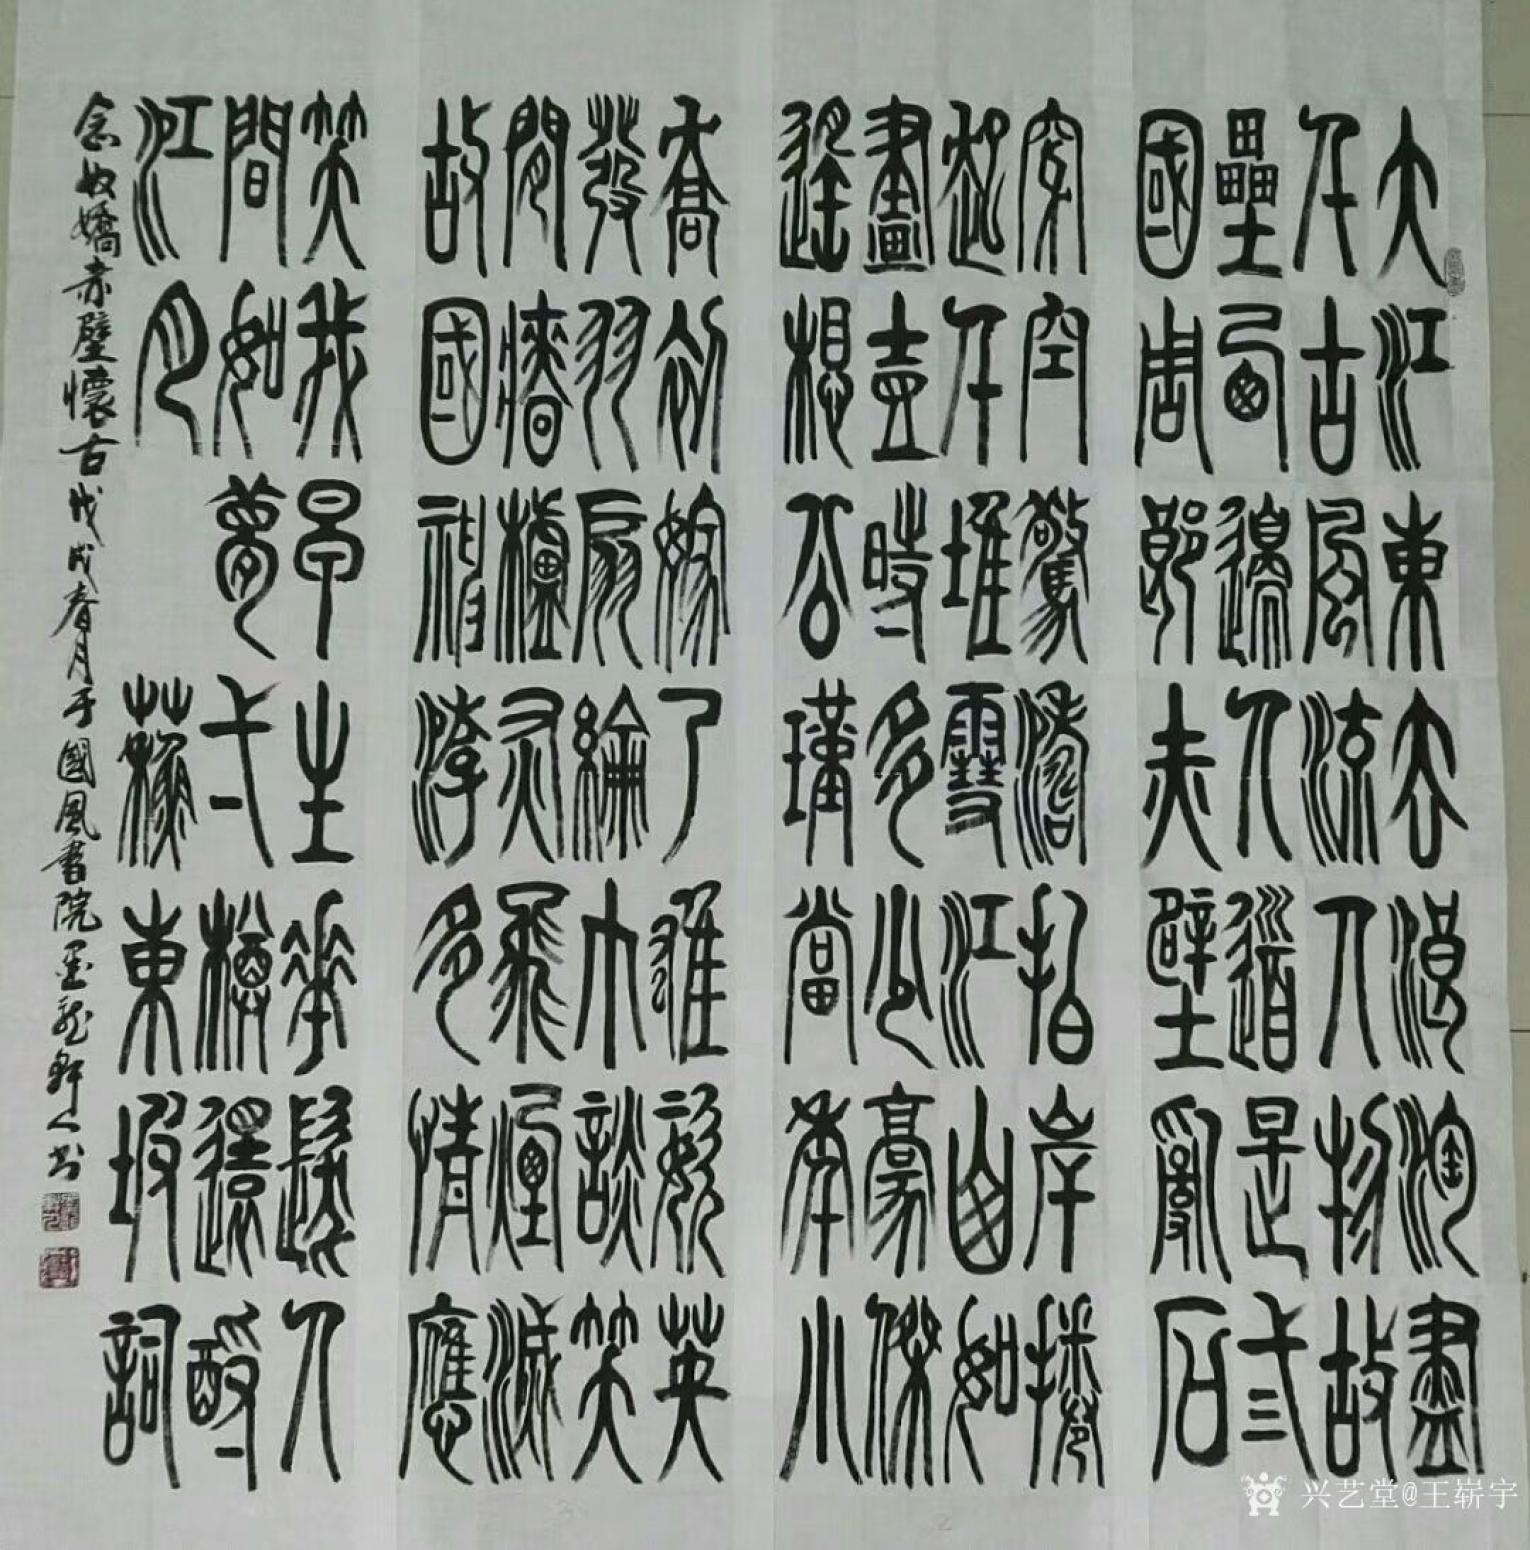 大江東去浪淘盡
千古風流人物故
壘西邊人道是弎
國周郎赤壁亂石
穿空驚濤拍岸捲
起千堆雪江山如
畫壹時多少豪傑
遙想公瑾當年小
喬初嫁了雄姿英
發羽扇綸巾談笑
閒檣櫓灰飛煙滅
故國神游多情應
笑我早生華髮人
間如夢弌樽還酹
江月 蘇東坡詞
念奴嬌赤壁懷古戊戌春月于國風書院墨龍軒人书
兴艺堂@王崭宇